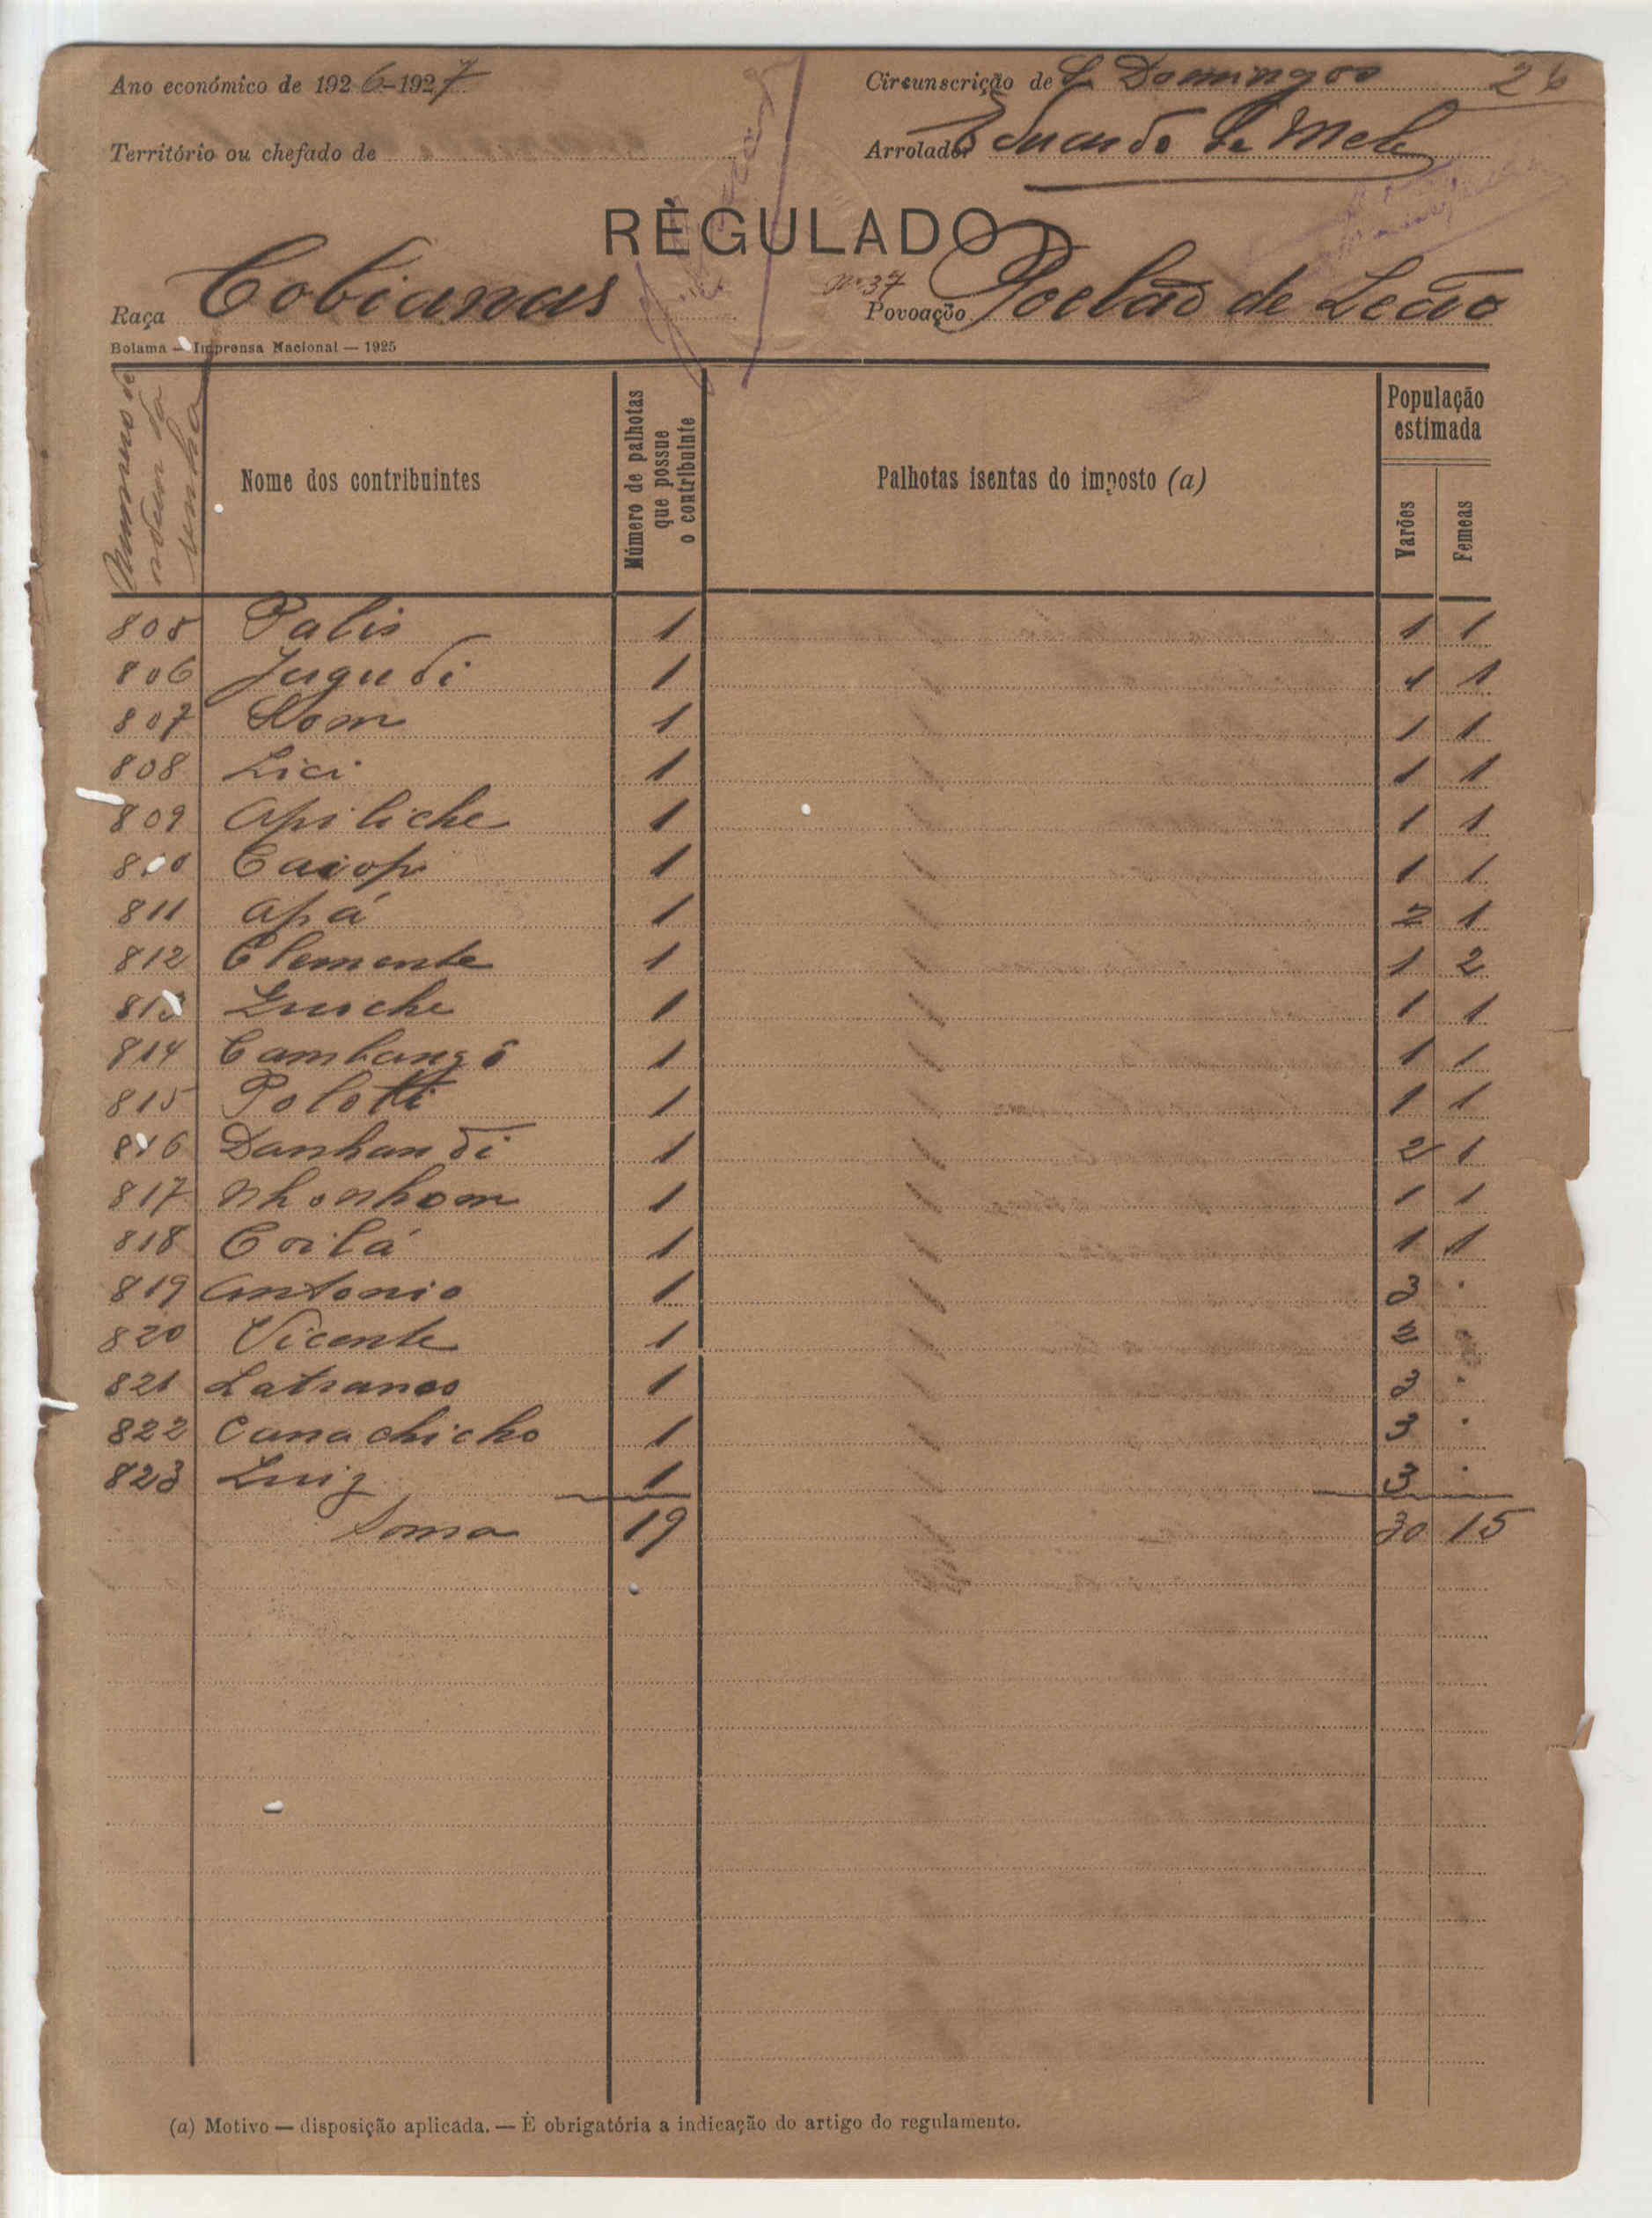 Ano económico de 1926-1927
Circunscrição de S. Domingos 26
Território ou chefado de
Arrolador Eduardo de Melo
RÈGULADO
Raça Cobianas
Nº 37
Povoação Poelão de Leão
Bolama — Imprensa Nacional — 1925
Numeros de ordem da senha
Nome dos contribuintes
Número de palhotas que possue o contribuinte
Palhotas isentas do imposto (a)
População estimada
Varões
Femeas
805 Palis 1 1 1
806 Jugudi 1 1 1
807 Kom 1 1 1
808 Lici 1 1 1
809 Apiliche 1 1 1
810 Caiop 1 1 1
811 Apá 1 2 1
812 Clemente 1 1 2
813 1 1 1
814 Cambangô 1 1 1
815 Polotti 1 1 1
816 Danhandi 1 2 1
817 Nhonhom 1 1 1
818 Coilá 1 1 1
819 Antonio 1 3 .
820 Vicente 1 2
821 1 3 .
822 Canachicho 1 3 .
823 Luiz 1 3 .
Soma 19 30 15
(a) Motivo — disposição aplicada. — É obrigatória a indicação do artigo do regulamento.